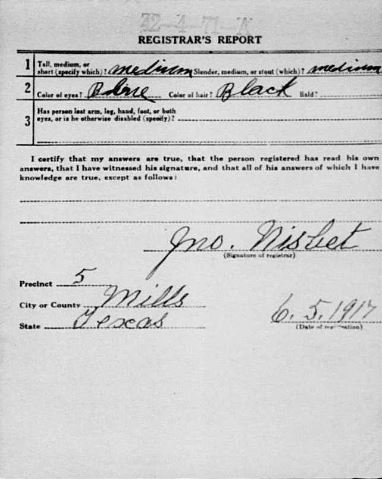 32-4-71-A
REGISTRAR'S REPORT
1 Tall, medium, or short (specify which)? medium Slender, medium, or stout (which)? medium
2 Color of eyes? Blue Color of hair? Black Bald?
3 Has person lost arm, leg, hand, foot, or both eyes, or is he otherwise disabled (specify)?
I certify that my answers are true, that the person registered has read his own
answers, that I have witnessed his signature, and that all of his answers of which I have
knowledge are true, except as follows:
Jno. Nisbet
(Signature of registrar)
Precinct 5
City or County Mills
State Texas
6.5.1917
(Date of registration)